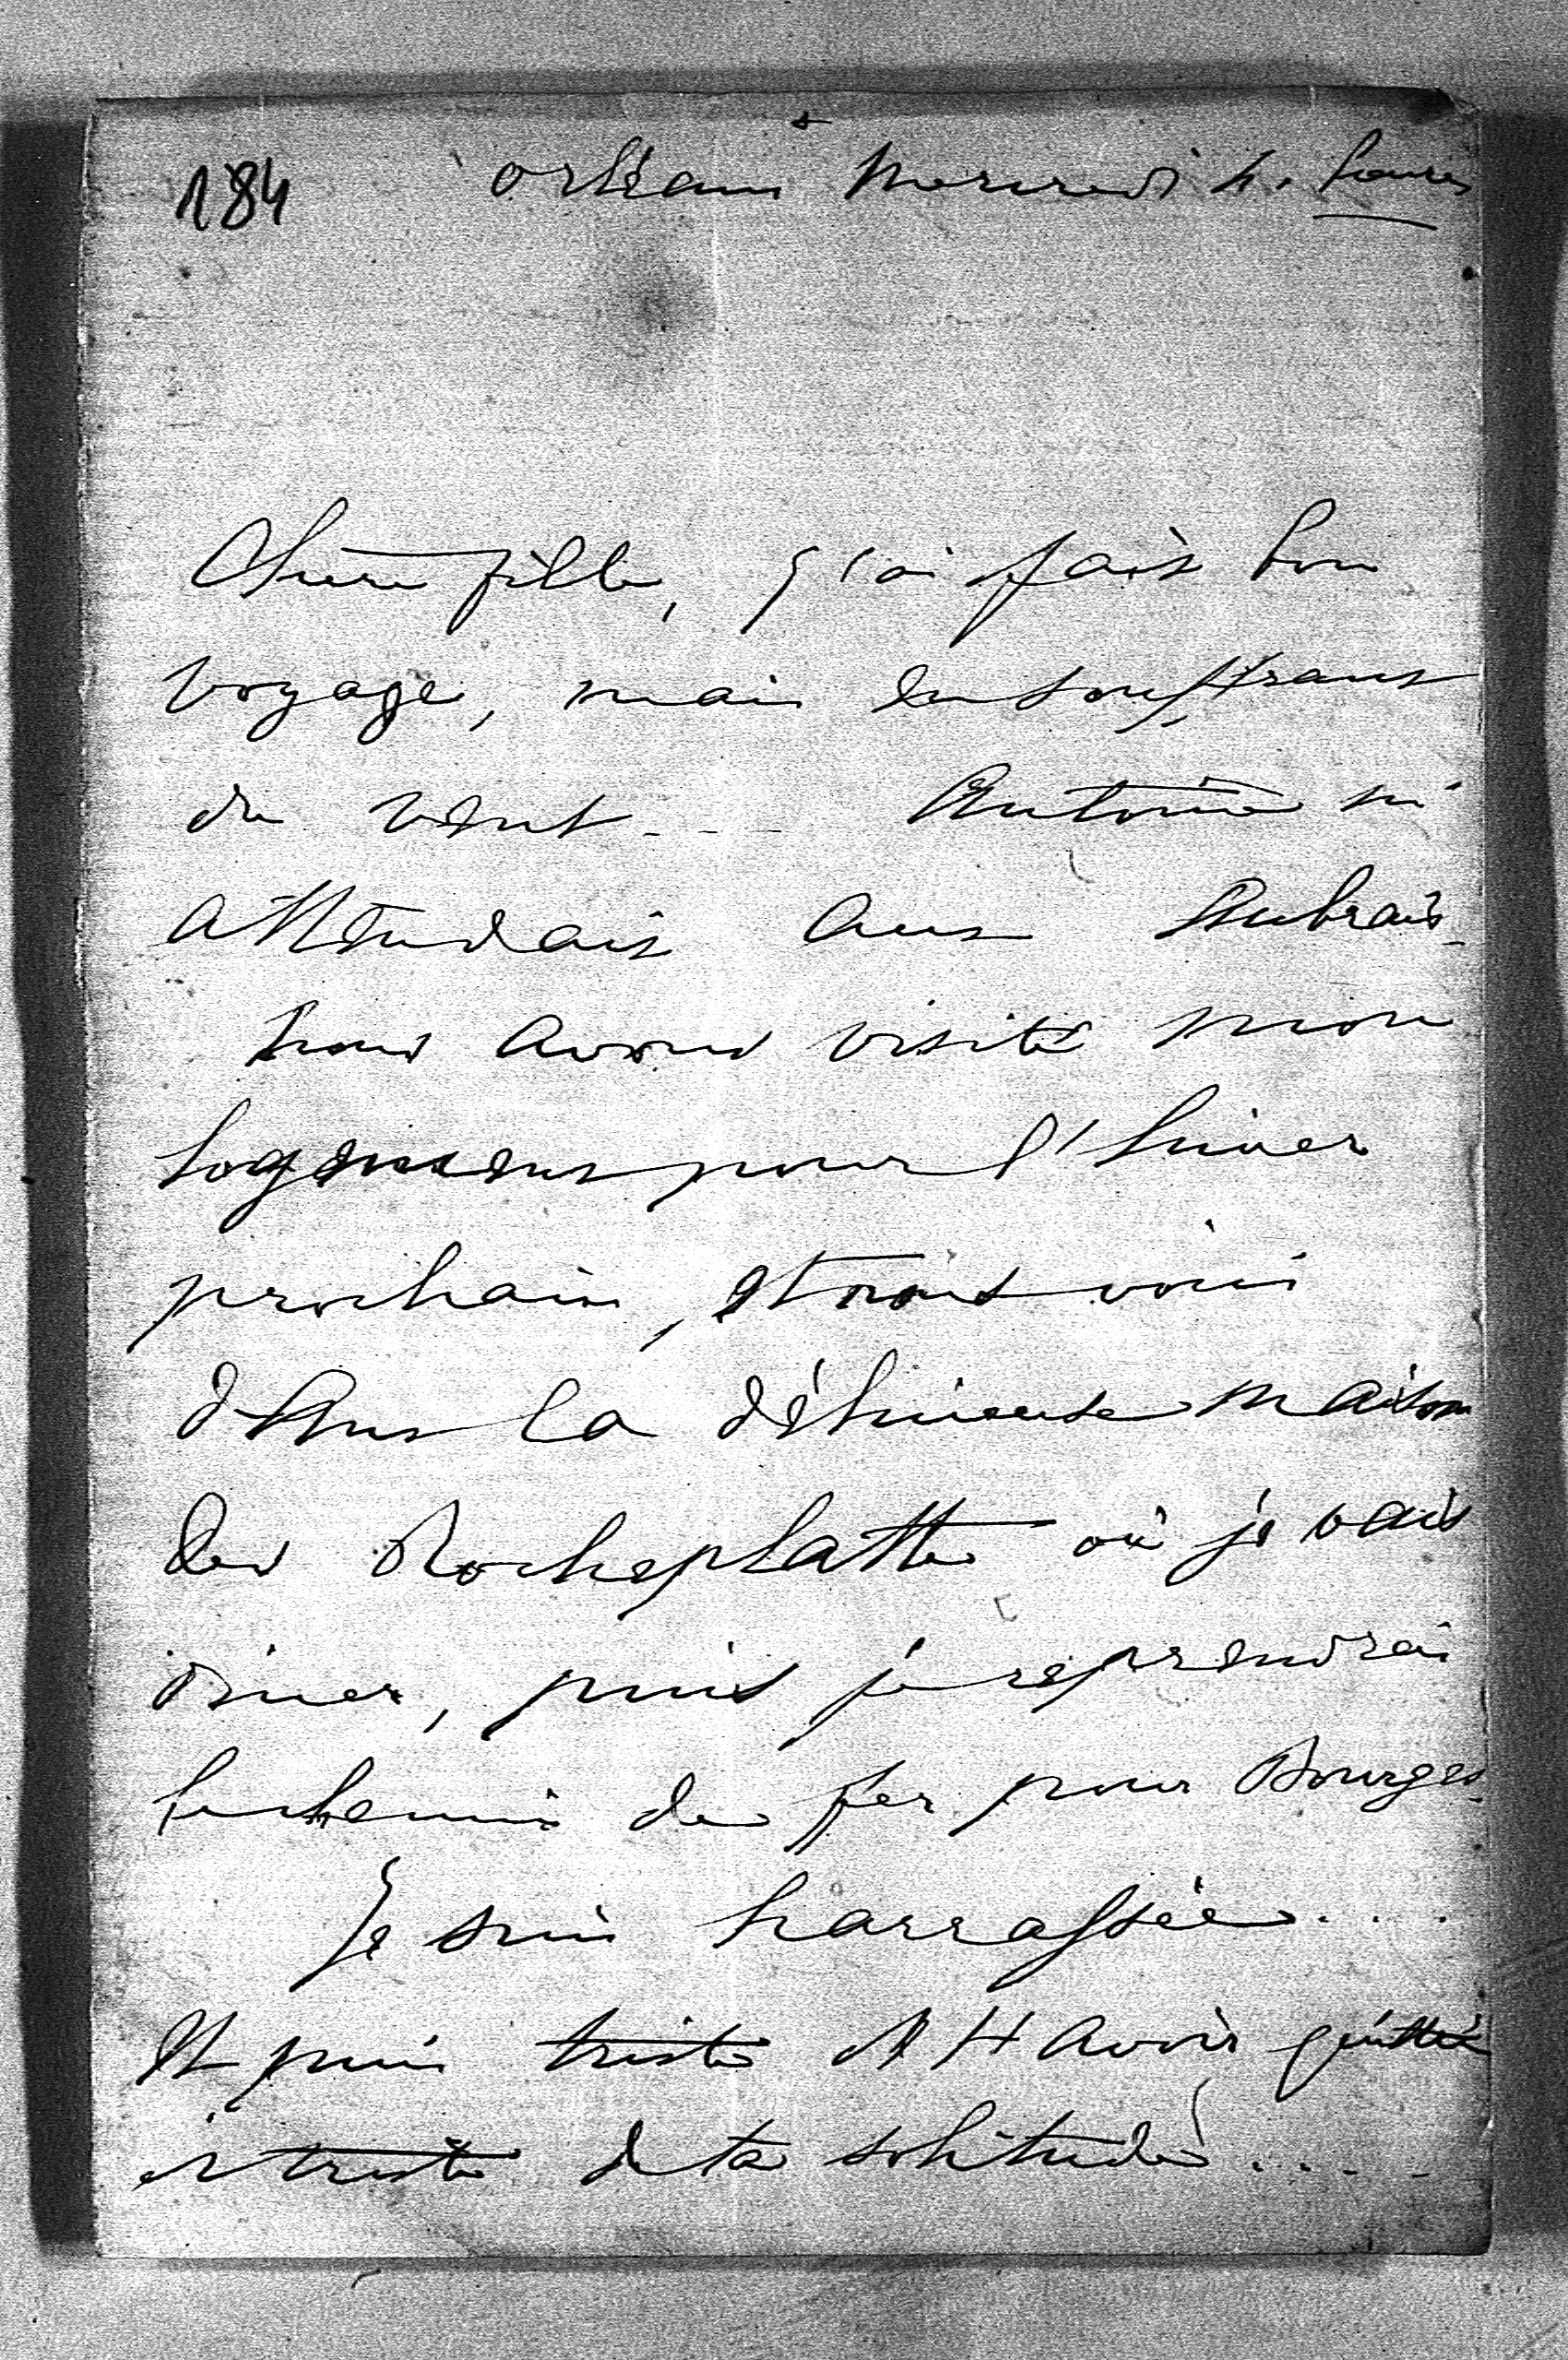 184 Orléans Mercredi 4. heures
Chère fille, j'ai fait bon
voyage, mais en souffrant
du vent. Antoine m'
attendait aux Aubrais.
Nous avons visité mon
logement pour l'hiver
prochain, et nous voici
dans la délicieuse maison
des Rocheplatte où je vais
diner, puis je reprendrai
le chemin de fer pour Bourges.
Je suis harrassée....
et puis triste de t'avoir quittée
et triste de ta solitude.....